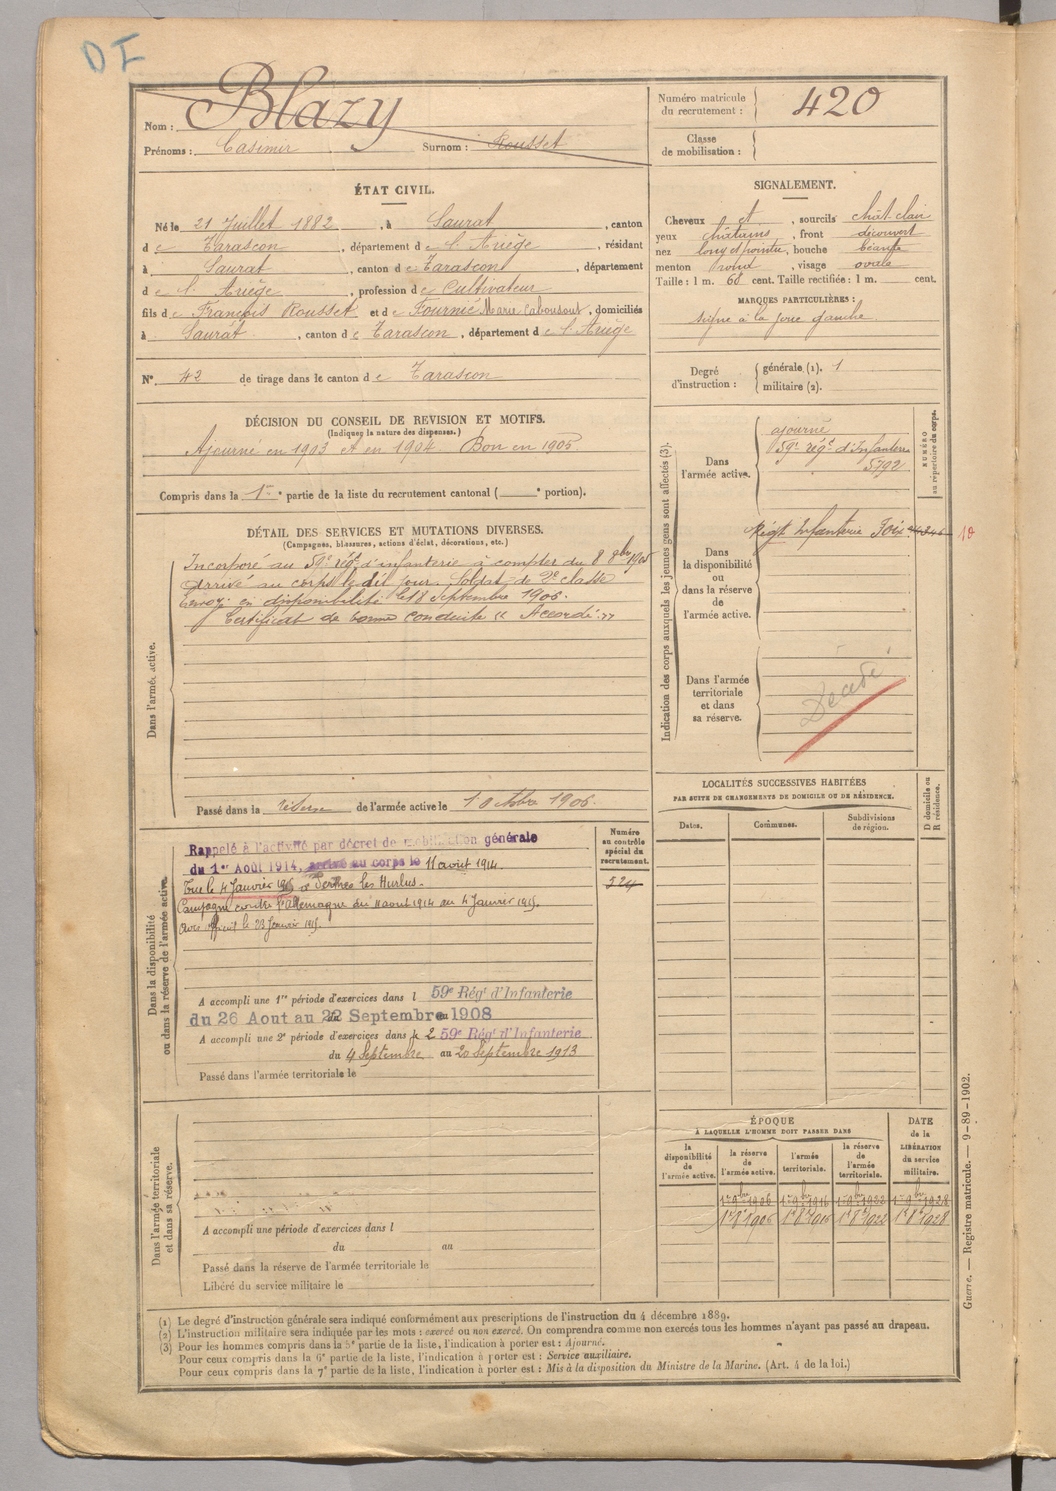 DI
Nom : Blazy
Prénoms : Casimir Surnom : Rousset
Numéro matricule du recrutement : 420
Classe de mobilisation :
ÉTAT CIVIL.
Né le 21 Juillet 1882, à Saurat, canton
d e Tarascon, département d e l'Ariège, résidant
à Saurat, canton d e Tarascon, département
d e l'Ariège, profession d e Cultivateur
fils d e François Rousset et d e Fournié Marie, domiciliés
à Saurat, canton d e Tarascon, département d e l'Ariège
N° 42 de tirage dans le canton d e Tarascon
SIGNALEMENT.
Cheveux et, sourcils chât-clair
yeux châtains, front découvert
nez long et pointu, bouche béante
menton rond, visage ovale
Taille : 1 m. 68 cent. Taille rectifiée : 1 m. cent.
MARQUES PARTICULIÈRES :
signe à la joue gauche
Degré d'instruction : générale (1). 1
militaire (2).
DÉCISION DU CONSEIL DE REVISION ET MOTIFS.
(Indiquez la nature des dispenses.)
Ajourné en 1903 et en 1904 Bon en 1905
Compris dans la 1re partie de la liste du recrutement cantonal ( e portion).
DÉTAIL DES SERVICES ET MUTATIONS DIVERSES.
(Campagnes, blessures, actions d'éclat, décorations, etc.)
Dans l'armée active.
Incorporé au 59e régt d'infanterie à compter du 8 8bre 1905
arrivé au corps le dit jour. Soldat de 2e classe
Envoyé en disponibilité le 18 Septembre 1906.
Certificat de bonne conduite « Accordé. »
Passé dans la réserve de l'armée active le 1 octobre 1906.
Indication des corps auxquels les jeunes gens sont affectés (3).
NUMÉRO au répertoire du corps.
Dans l'armée active.
ajourné
59e régt d'Infanterie
5792
Dans la disponibilité ou dans la réserve de l'armée active.
Régt Infanterie Foix
10
Dans l'armée territoriale et dans sa réserve.
Décédé
LOCALITÉS SUCCESSIVES HABITÉES
PAR SUITE DE CHANGEMENTS DE DOMICILE OU DE RÉSIDENCE.
Dates. Communes. Subdivisions de région. D domicile ou R résidence.
Dans la disponibilité ou dans la réserve de l'armée active.
Numéro au contrôle spécial du recrutement.
324
Rappelé à l'activité par décret de mobilisation générale
du 1er Août 1914, arrivé au corps le 11 août 1914.
Tué le 4 Janvier 1915 à Perthes les Hurlus.
Campagne contre l'Allemagne du 11 août 1914 au 4 Janvier 1915.
Avis officiel le 23 Janvier 1915.
A accompli une 1re période d'exercices dans l 59e Régt d'Infanterie
du 26 Aout au 22 Septembre 1908
A accompli une 2e période d'exercices dans le 59e Régt d'Infanterie
du 4 Septembre au 20 Septembre 1913
Passé dans l'armée territoriale le
Dans l'armée territoriale et dans sa réserve.
A accompli une période d'exercices dans l
du au
Passé dans la réserve de l'armée territoriale le
Libéré du service militaire le
ÉPOQUE
À LAQUELLE L'HOMME DOIT PASSER DANS
la disponibilité de l'armée active. la réserve de l'armée active. l'armée territoriale. la réserve de l'armée territoriale. DATE de la LIBÉRATION du service militaire.
1er 9bre 1906 1er 9bre 1916 1er 9bre 1922 1er 9bre 1928
1er 8bre 1906 1er 8bre 1916 1er 8bre 1922 1er 8bre 1928
Guerre. — Registre matricule. — 9-89-1902.
(1) Le degré d'instruction générale sera indiqué conformément aux prescriptions de l'instruction du 4 décembre 1889.
(2) L'instruction militaire sera indiquée par les mots : exercé ou non exercé. On comprendra comme non exercés tous les hommes n'ayant pas passé au drapeau.
(3) Pour les hommes compris dans la 5e partie de la liste, l'indication à porter est : Ajourné.
Pour ceux compris dans la 6e partie de la liste, l'indication à porter est : Service auxiliaire.
Pour ceux compris dans la 7e partie de la liste, l'indication à porter est : Mis à la disposition du Ministre de la Marine. (Art. 4 de la loi.)